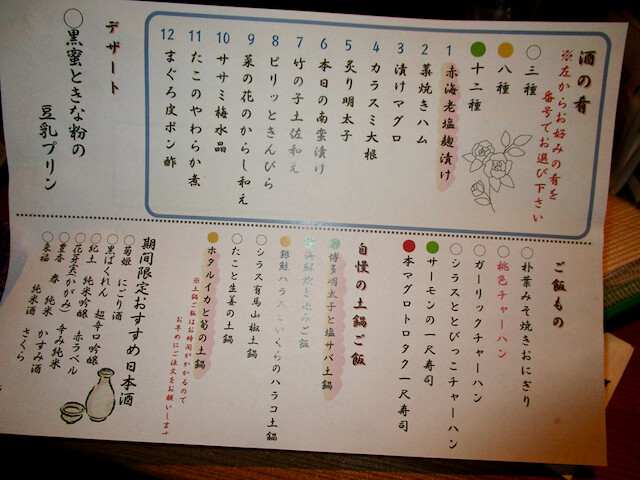 酒の肴
※左からお好みの肴を
番号でお選び下さい
○三種
●八種
●十二種
1 赤海老塩麹漬け
2 藁焼きハム
3 漬けマグロ
4 カラスミ大根
5 炙り明太子
6 本日の南蛮漬け
7 竹の子土佐和え
8 ピリッときんぴら
9 菜の花のからし和え
10 ササミ梅水晶
11 たこのやわらか煮
12 まぐろ皮ポン酢
デザート
○黒蜜ときな粉の
豆乳プリン
ご飯もの
○朴葉みそ焼きおにぎり
○桃色チャーハン
○ガーリックチャーハン
○シラスととびっこチャーハン
●サーモンの一尺寿司
●本マグロトロタク一尺寿司
自慢の土鍋ご飯
博多明太子と塩サバ土鍋
海鮮炊き込みご飯
銀鮭ハラスといくらのハラコ土鍋
○シラス有馬山椒土鍋
○たこと生姜の土鍋
●ホタルイカと筍の土鍋
※土鍋ご飯はお時間がかかるので
お早めにご注文をお願いします
期間限定おすすめ日本酒
○菊姫 にごり酒
○黒ばくれん 超辛口吟醸
○紀土 純米吟醸 赤ラベル
○花芽霞(かがみ) 辛み純米
○豊香 春 純米 かすみ酒
○来福 純米酒 さくら